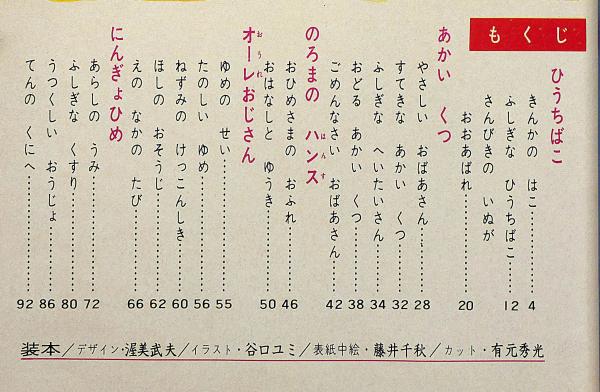 もくじ
ひうちばこ
きんかの はこ……4
ふしぎな ひうちばこ……12
さんびきの いぬが
おおあばれ……20
あかい くつ
やさしい おばあさん……28
すてきな あかい くつ……32
ふしぎな へいたいさん……34
おどる あかい くつ……38
ごめんなさい おばあさん……42
のろまの ハンス
はんす
おひめさまの おふれ……46
おはなしと ゆうき……50
オーレおじさん
おうれ
ゆめの せい……55
たのしい ゆめ……56
ねずみの けっこんしき……60
ほしの おそうじ……62
えの なかの たび……66
にんぎょひめ
あらしの うみ……72
ふしぎな くすり……80
うつくしい おうじょ……86
てんの くにへ……92
装本／デザイン・渥美武夫／イラスト・谷口ユミ／表紙中絵・藤井千秋／カット・有元秀光